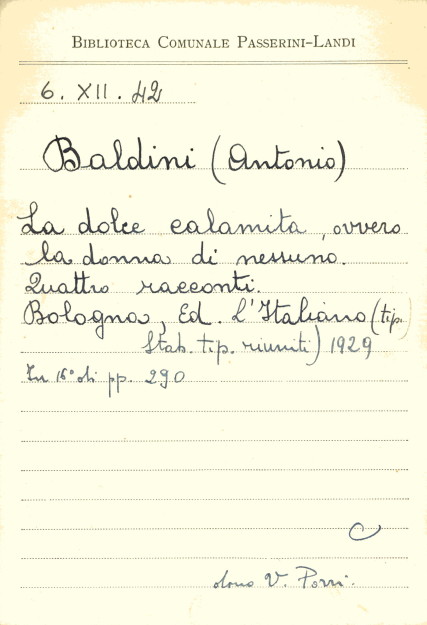 BIBLIOTECA COMUNALE PASSERINI-LANDI
6. XII. 42
Baldini (Antonio)
La dolce calamita, ovvero
la donna di nessuno.
Quattro racconti.
Bologna, Ed. L'Italiano (tip.
Stab. tip. riuniti) 1929
In 16° di pp. 290
C
dono V. Porri.